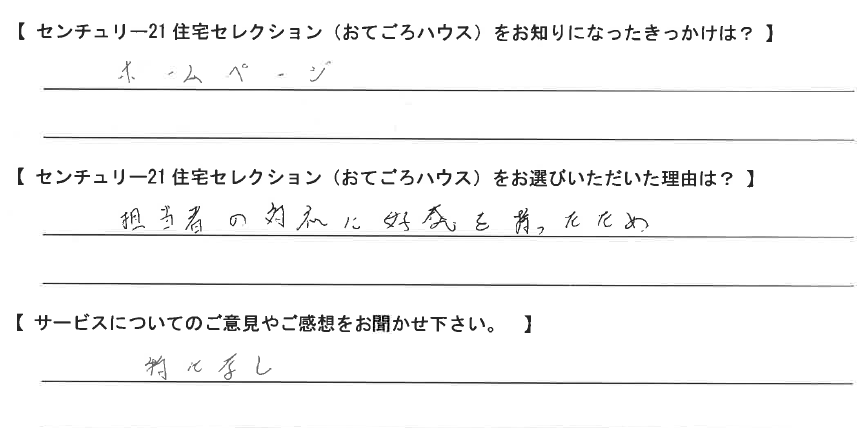 【 センチュリー21住宅セレクション（おてごろハウス）をお知りになったきっかけは？ 】
ホームページ
【 センチュリー21住宅セレクション（おてごろハウス）をお選びいただいた理由は？ 】
担当者の対応に好感を持ったため
【 サービスについてのご意見やご感想をお聞かせ下さい。 】
特になし